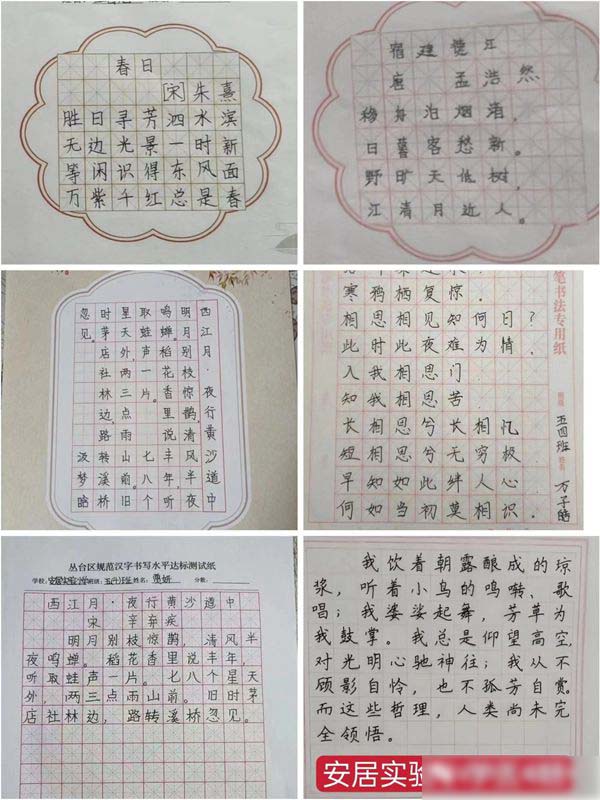 春日
[宋]朱熹
胜日寻芳泗水滨
无边光景一时新
等闲识得东风面
万紫千红总是春
宿建德江
唐 孟浩然
移舟泊烟渚,
日暮客愁新。
野旷天低树,
江清月近人。
西江月·夜行黄沙道中
明月别枝惊鹊,清风半夜
鸣蝉。稻花香里说丰年,听
取蛙声一片。七八个
星天外,两三点雨山前。旧
时茅店社林边,路转溪桥
忽见。
汲梦
寒鸦栖复惊.
相思相见知何日?
此时此夜难为情,
入我相思门
知我相思苦
长相思兮长相忆
短相思兮无穷极
早知如此绊人心
何如当初莫相识.
笔书法专用纸
班级 五四班 姓名 万子
丛台区规范汉字书写水平达标测试纸
学校: 班级: 姓名: 妍 分数:
西江月·夜行黄沙道中
宋 辛弃疾
明月别枝惊鹊, 清风半
夜鸣蝉。稻花香里说丰年,
听取蛙声一片。七八个星天
外, 两三点雨山前。旧时茅
店社林边, 路转溪桥忽见。
我饮着朝露酿成的琼
浆, 听着小鸟的鸣啭、歌
唱; 我婆娑起舞, 芳草为
我鼓掌。我总是仰望高空,
对光明心驰神往; 我从不
顾影自怜, 也不孤芳自赏.
而这些哲理, 人类尚未完
全领悟。
安居实验